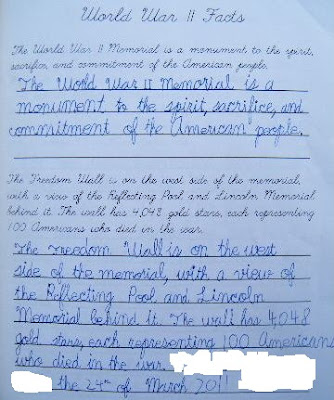 World War II Facts
The World War II Memorial is a monument to the spirit,
sacrifice, and commitment of the American people.
The World War II Memorial is a
monument to the spirit, sacrifice, and
commitment of the American people.
The Freedom Wall is on the west side of the memorial,
with a view of the Reflecting Pool and Lincoln Memorial
behind it. The wall has 4,048 gold stars, each representing
100 Americans who died in the war.
The Freedom Wall is on the west
side of the memorial, with a view of
the Reflecting Pool and Lincoln
Memorial behind it. The wall has 4,048
gold stars, each representing 100 Americans
who died in the war.
the 24th of March 2011